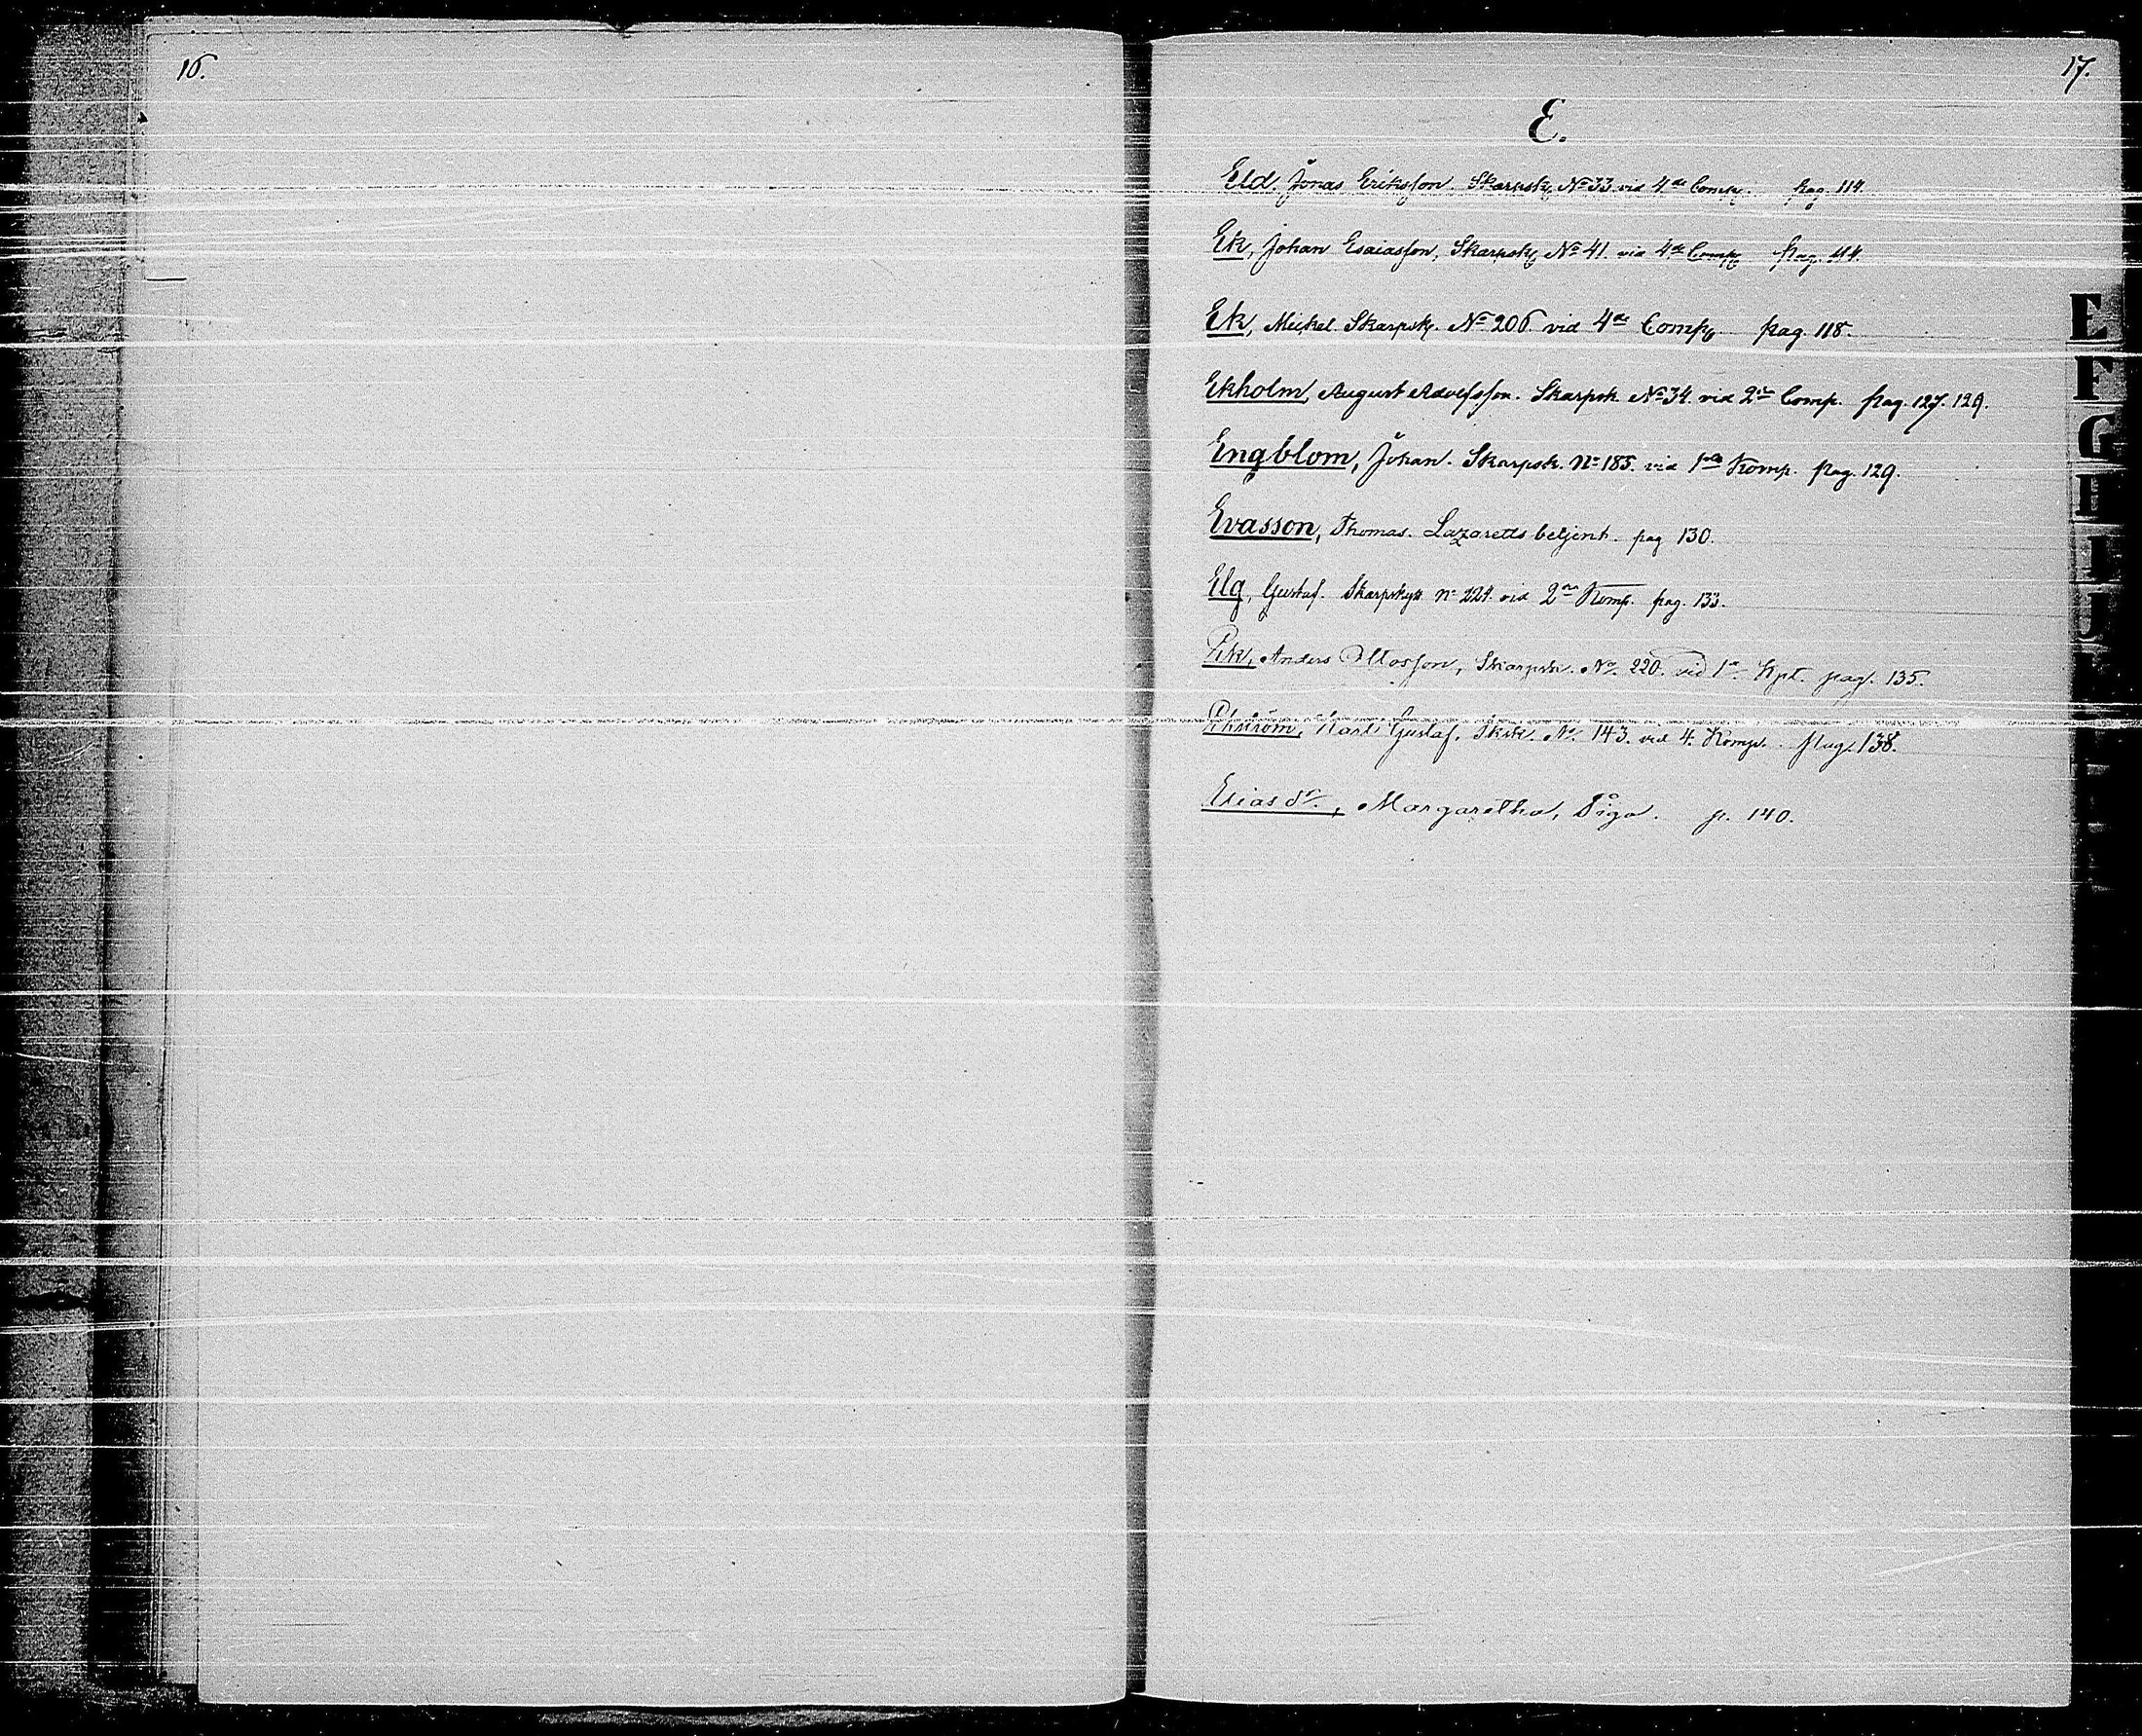 16.
17.
E.
Eld, Jonas Eriksson. Skarpsk. No 33 vid 4de Comp. pag. 114.
Ek, Johan Esaiasson, Skarpsk. No 41. vid 4de Comp. pag. 114.
Ek, Mickel. Skarpsk. No 206. vid 4de Comp. pag. 118.
Ekholm, August Adolfsson. Skarpsk. No 34. vid 2dra Comp. pag. 127. 129.
Engblom, Johan. Skarpsk. No 185. vid 1sta Komp. pag. 129.
Evasson, Thomas. Lazaretts betjent. pag 130.
Elg, Gustaf. Skarpskytt no 224. vid 2dra Komp. pag. 133.
Ek, Anders Mosson, Skarpsk. No. 220. vid 1a Kpt. pag. 135.
Ekström, Karl Gustaf, Sksk. No. 143. vid 4. Komp. pag. 138.
Elias dr., Margaretha, Piga. p. 140.
E
F
G
I
J